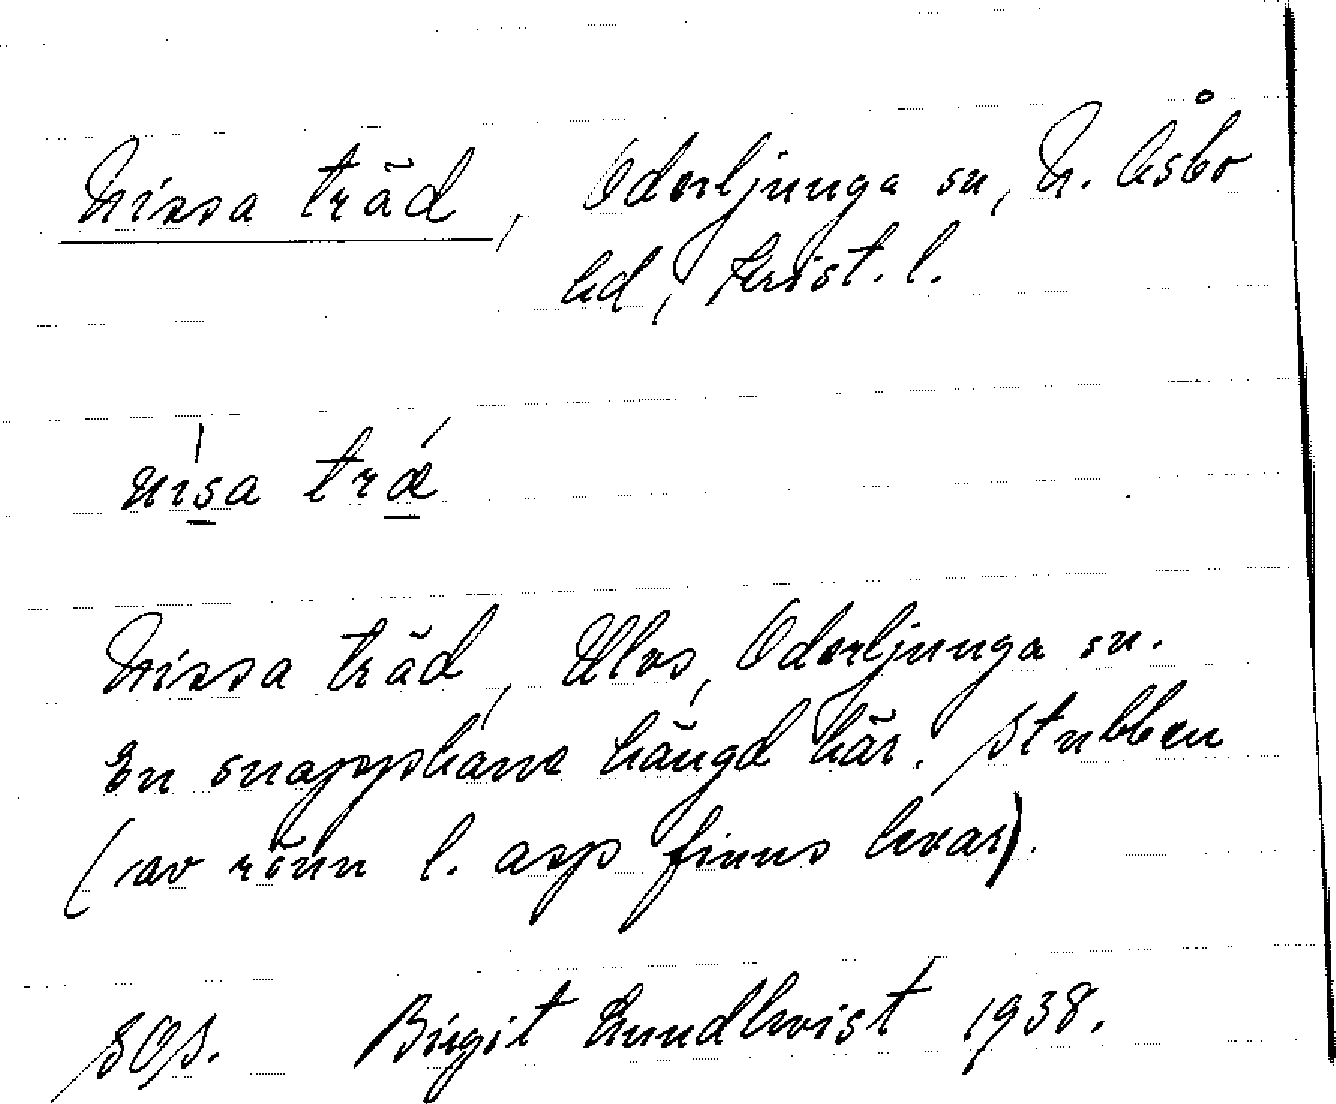 Nissa träd, Oderljunga sn, N. Åsbo
hd, Krist. l.
nisa træ
Nissa träd, Ulvs, Oderljunga sn.
En snapphane hängd här. Stubben
(av rönn l. asp finns kvar).
SOS. Birgit Lundkvist 1938.